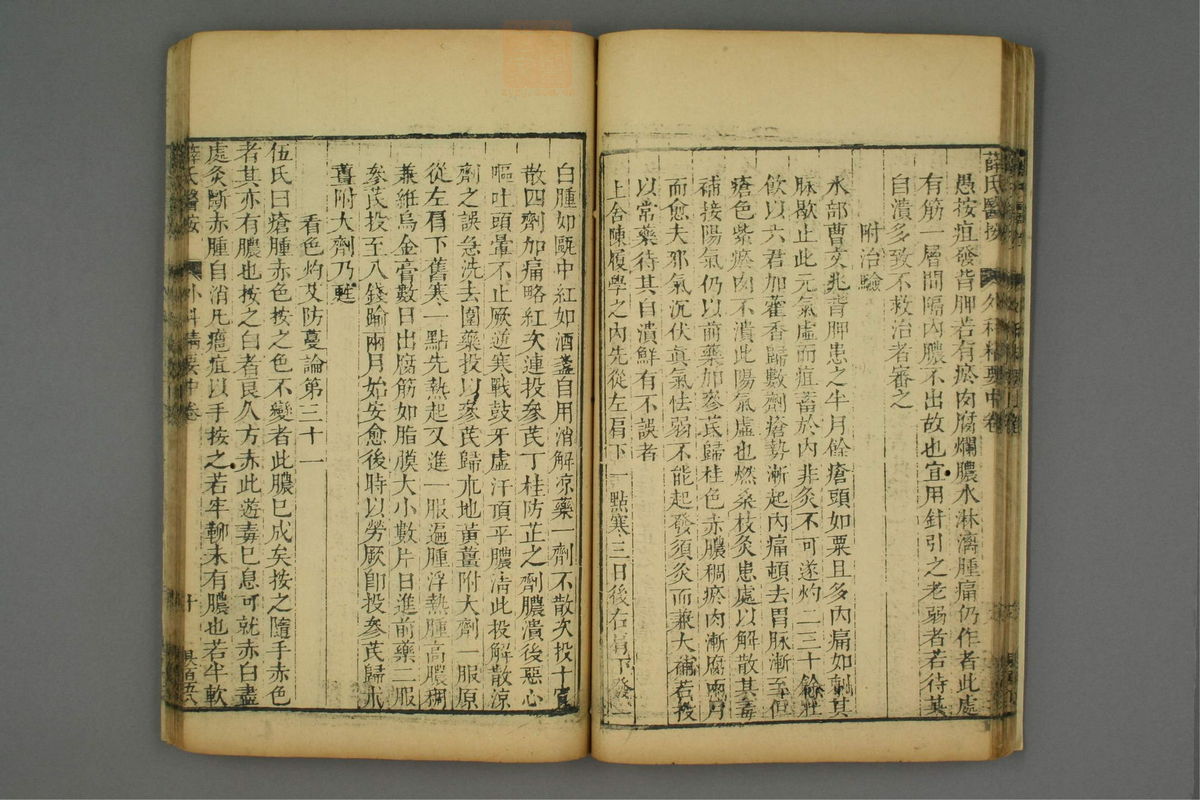 薛氏醫按
外科精要中卷
愚按疽發背胛若有瘀肉腐爛膿水淋漓腫痛仍作者此處
有筋一層間隔內膿不出故也宜用針引之老弱者若待其
自潰多致不救治者審之
附治驗
水部曹文兆背胛患之半月餘瘡頭如粟且多內痛如刺其
脉歇止此元氣虛而疽蓄於內非灸不可遂灼二三十餘壯
飲以六君加藿香歸數劑瘡勢漸起內痛頓去胃脉漸至但
瘡色紫瘀肉不潰此陽氣虛也燃桑枝灸患處以解散其毒
補接陽氣仍以前藥加參芪歸桂色赤膿稠瘀肉漸腐兩月
而愈夫邪氣沉伏真氣怯弱不能起發須灸而兼大補若投
以常藥待其自潰鮮有不誤者
上舍陳履學之內先從左肩下一點寒三日後右肩下發一
白腫如甌中紅如酒盞自用消解涼藥一劑不散次投十宣
散四劑加痛略紅次連投參芪丁桂防芷之劑膿潰後惡心
嘔吐頭暈不止厥逆寒戰鼓牙虛汗頂平膿淸此投解散涼
劑之誤急洗去圍藥投以參芪歸朮地黃薑附大劑一服原
從左肩下舊寒一點先熱起又進一服遍腫浮熱腫高膿稠
兼維烏金膏數日出腐筋如脂膜大小數片日進前藥二服
參芪投至八錢踰兩月始安愈後時以勞厥卽投參芪歸朮
薑附大劑乃甦
看色灼艾防蔓論第三十一
伍氏曰瘡腫赤色按之色不變者此膿已成矣按之隨手赤色
者其亦有膿也按之白者良久方赤此遊毒已息可就赤白盡
處灸斷赤腫自消凡癰疽以手按之若牢靭未有膿也若半軟
薛氏醫按
外科精要中卷
十
具百五八